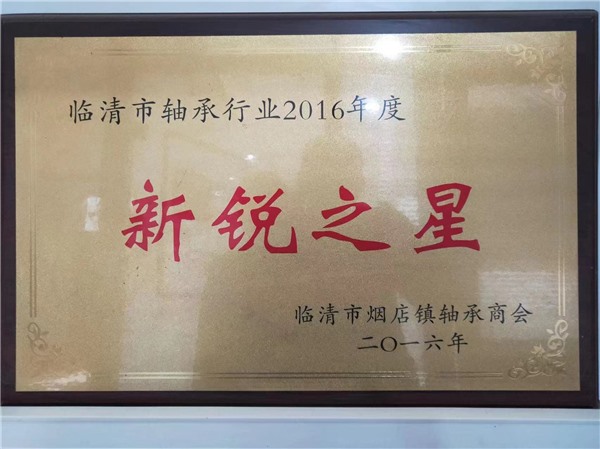 临清市轴承行业2016年度
新锐之星
临清市烟店镇轴承商会
二〇一六年